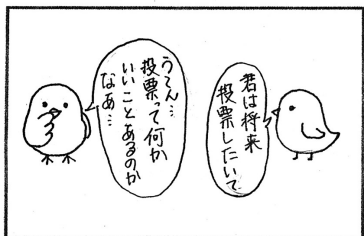 君は将来
投票したい?
うーん…
投票って何か
いいことあるのか
なあ…